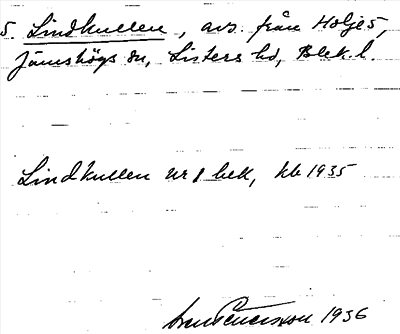 5. Lindkullen, avs. från Holje 5,
Jämshögs sn, Listers hd, Blek. l.
Lindkullen nr 1 bek, kb 1935
1936